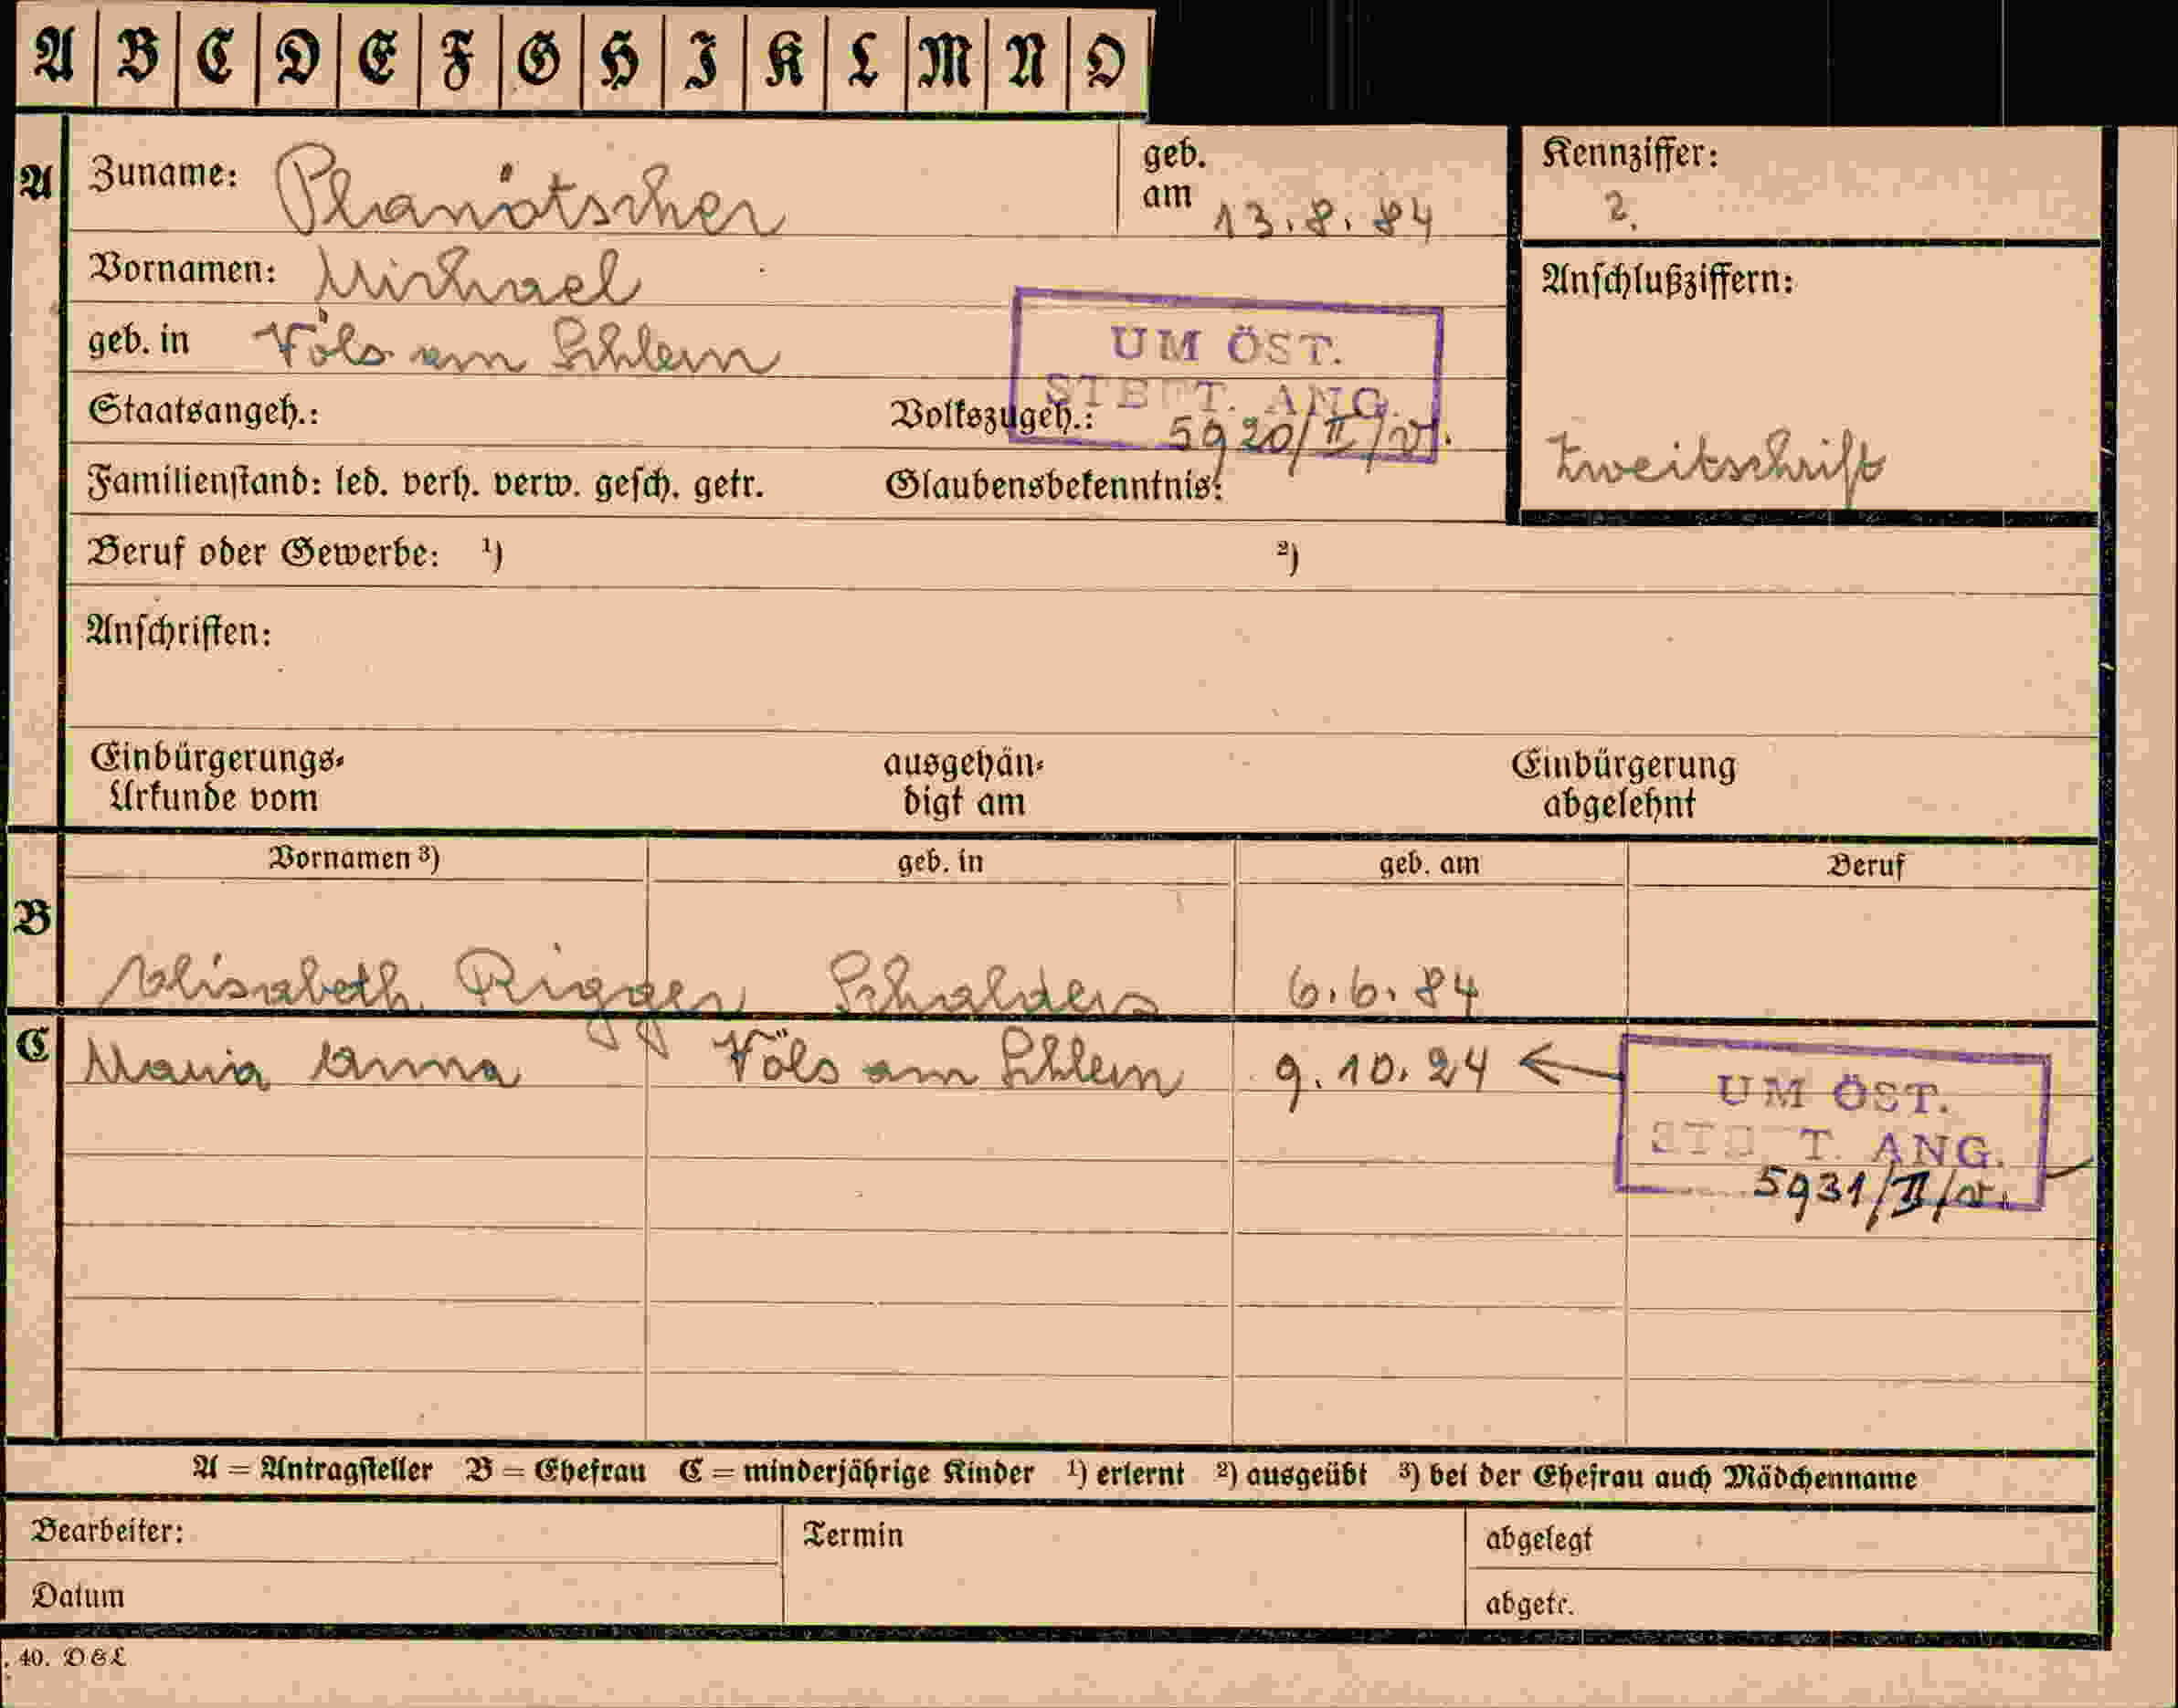 A B C D E F G H I K L M N O
A Zuname: Planötscher geb. am 13.8.84 Kennziffer: 2.
Vornamen: Michael Anschlußziffern:
geb. in Völs am Schlern UM ÖST.
Staatsangeh.: Volkszugeh.: ST T. ANG.
5920/II/V. Zweitschrift
Familienstand: led. verh. verw. gesch. getr. Glaubensbekenntnis:
Beruf oder Gewerbe: ¹) ²)
Anschriften:
Einbürgerungs- ausgehän- Einbürgerung
Urkunde vom digt am abgelehnt
Vornamen ³) geb. in geb. am Beruf
B
Elisabeth Rigger Schalders 6.6.84
C Maria Anna Völs am Schlern 9.10.24 ←
UM ÖST.
ST T. ANG.
5931/II/V.
A = Antragsteller B = Ehefrau C = minderjährige Kinder ¹) erlernt ²) ausgeübt ³) bei der Ehefrau auch Mädchenname
Bearbeiter: Termin abgelegt
Datum abgetr.
40. D&L